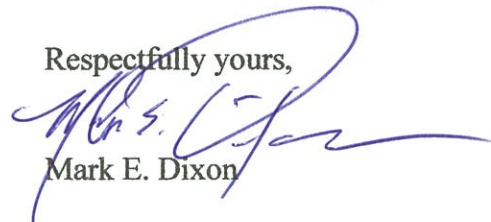 Respectfully yours,
Mark E. Dixon